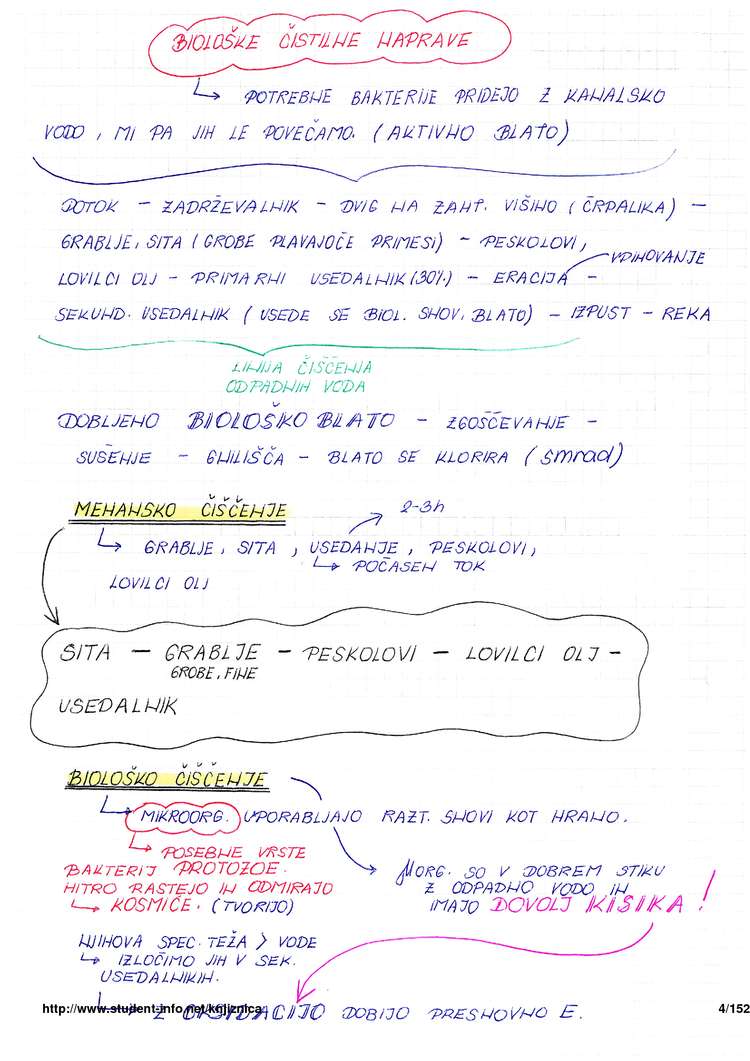 BIOLOŠKE ČISTILNE NAPRAVE
POTREBNE BAKTERIJE PRIDEJO Z KANALSKO
VODO, MI PA JIH LE POVEČAMO. (AKTIVNO BLATO)
DOTOK - ZADRŽEVALNIK - DVIG NA ZAHT. VIŠINO (ČRPALIKA) -
GRABLJE, SITA (GROBE PLAVAJOČE PRIMESI) - PESKOLOVI,
VPIHOVANJE
LOVILCI OLJ - PRIMARNI USEDALNIK (30%) - ERACIJA -
SEKUND. USEDALNIK (USEDE SE BIOL. SNOV, BLATO) - IZPUST - REKA
LINIJA ČIŠČENJA
ODPADNIH VODA
DOBLJENO BIOLOŠKO BLATO - ZGOŠČEVANJE -
SUŠENJE - GNILIŠČA - BLATO SE KLORIRA (smrad)
MEHANSKO ČIŠČENJE
2-3h
GRABLJE, SITA, USEDANJE, PESKOLOVI,
POČASEN TOK
LOVILCI OLJ
SITA - GRABLJE - PESKOLOVI - LOVILCI OLJ -
GROBE, FINE
USEDALNIK
BIOLOŠKO ČIŠČENJE
MIKROORG. UPORABLJAJO RAZT. SNOVI KOT HRANO.
POSEBNE VRSTE
BAKTERIJ PROTOZOE.
HITRO RASTEJO IN ODMIRAJO
KOSMIČE. (TVORIJO)
MORG. SO V DOBREM STIKU
Z ODPADNO VODO IN
IMAJO DOVOLJ KISIKA!
NJIHOVA SPEC. TEŽA > VODE
IZLOČIMO JIH V SEK.
USEDALNIKIH.
Z OKSIDACIJO DOBIJO PRESNOVNO E.
http://www.student-info.net/knjiznica
4/152